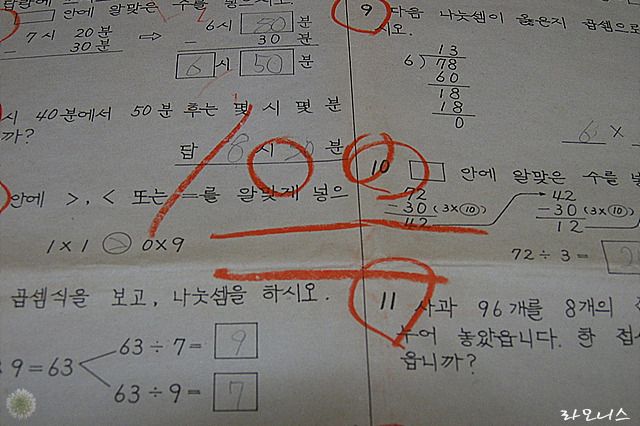 안에 알맞은 수를 넣으시오.
7시 20분 ⇨ 6시 80분
- 30분 - 30분
6시 50분
시 40분에서 50분 후는 몇 시 몇 분
까?
답 시 분
안에 >, < 또는 =를 알맞게 넣으
1×1 > 0×9
곱셈식을 보고, 나눗셈을 하시오.
9=63
63÷7= 9
63÷9= 7
9 다음 나눗셈이 옳은지 곱셈으로
시오.
13
6)78
60
18
18
0
6 ×
10 □ 안에 알맞은 수를
72 42
-30(3×⑩) -30(3×⑩)
42 12
72÷3= 2
11 사과 96개를 8개의
누어 놓았읍니다. 한 접
읍니까?
라오니스